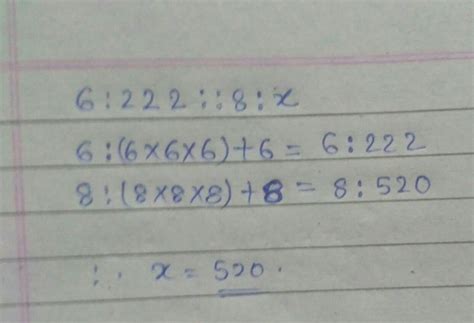 6:222::8:x
6:(6×6×6)+6= 6:222
8:(8×8×8)+8= 8:520
∴ x = 520.